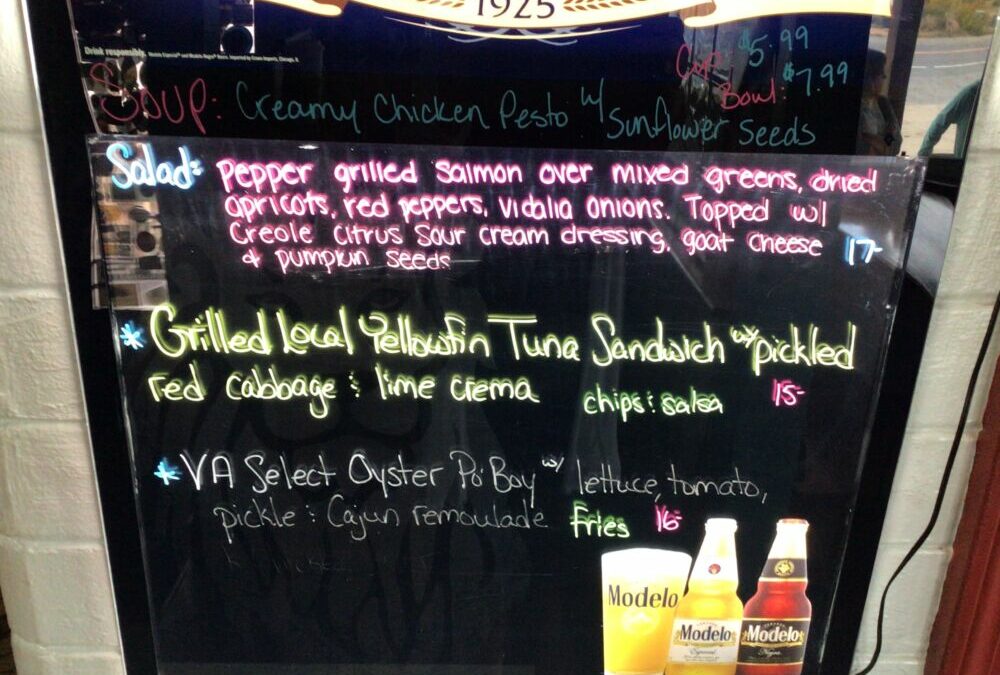 1925
Drink responsibly.
Cup: $5.99
Bowl: $7.99
Soup: Creamy Chicken Pesto w/ Sunflower Seeds
Salad: Pepper grilled Salmon over mixed greens, dried
apricots, red peppers, vidalia onions. Topped w/
Creole Citrus Sour cream dressing, goat cheese 17-
& pumpkin seeds
* Grilled Local Yellowfin Tuna Sandwich w/ pickled
red cabbage & lime crema chips & salsa 15-
* VA Select Oyster Po'Boy w/ lettuce, tomato,
pickle & Cajun remoulade fries 16-
Modelo
Modelo
Especial
Modelo
Negra